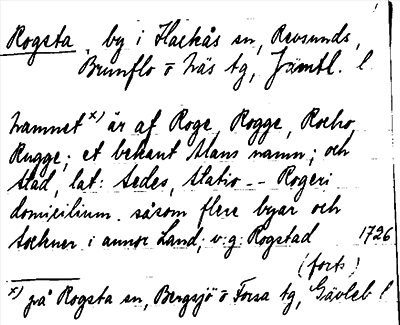 Rogsta, by i Hackås sn, Revsunds,
Brunflo o Näs tg, Jämtl. l
Namnet x) är af Roge, Rogge, Rocho
Rugge; et bekant Mans namn; och
stad, lat: Sedes, Statio -- Rogeri
domicilium. såsom flere byar och
Sockner i annor Land; v: g: Rogstad 1726
(forts)
x) på Rogsta sn, Bergsjö o Forsa tg, Gävleb l